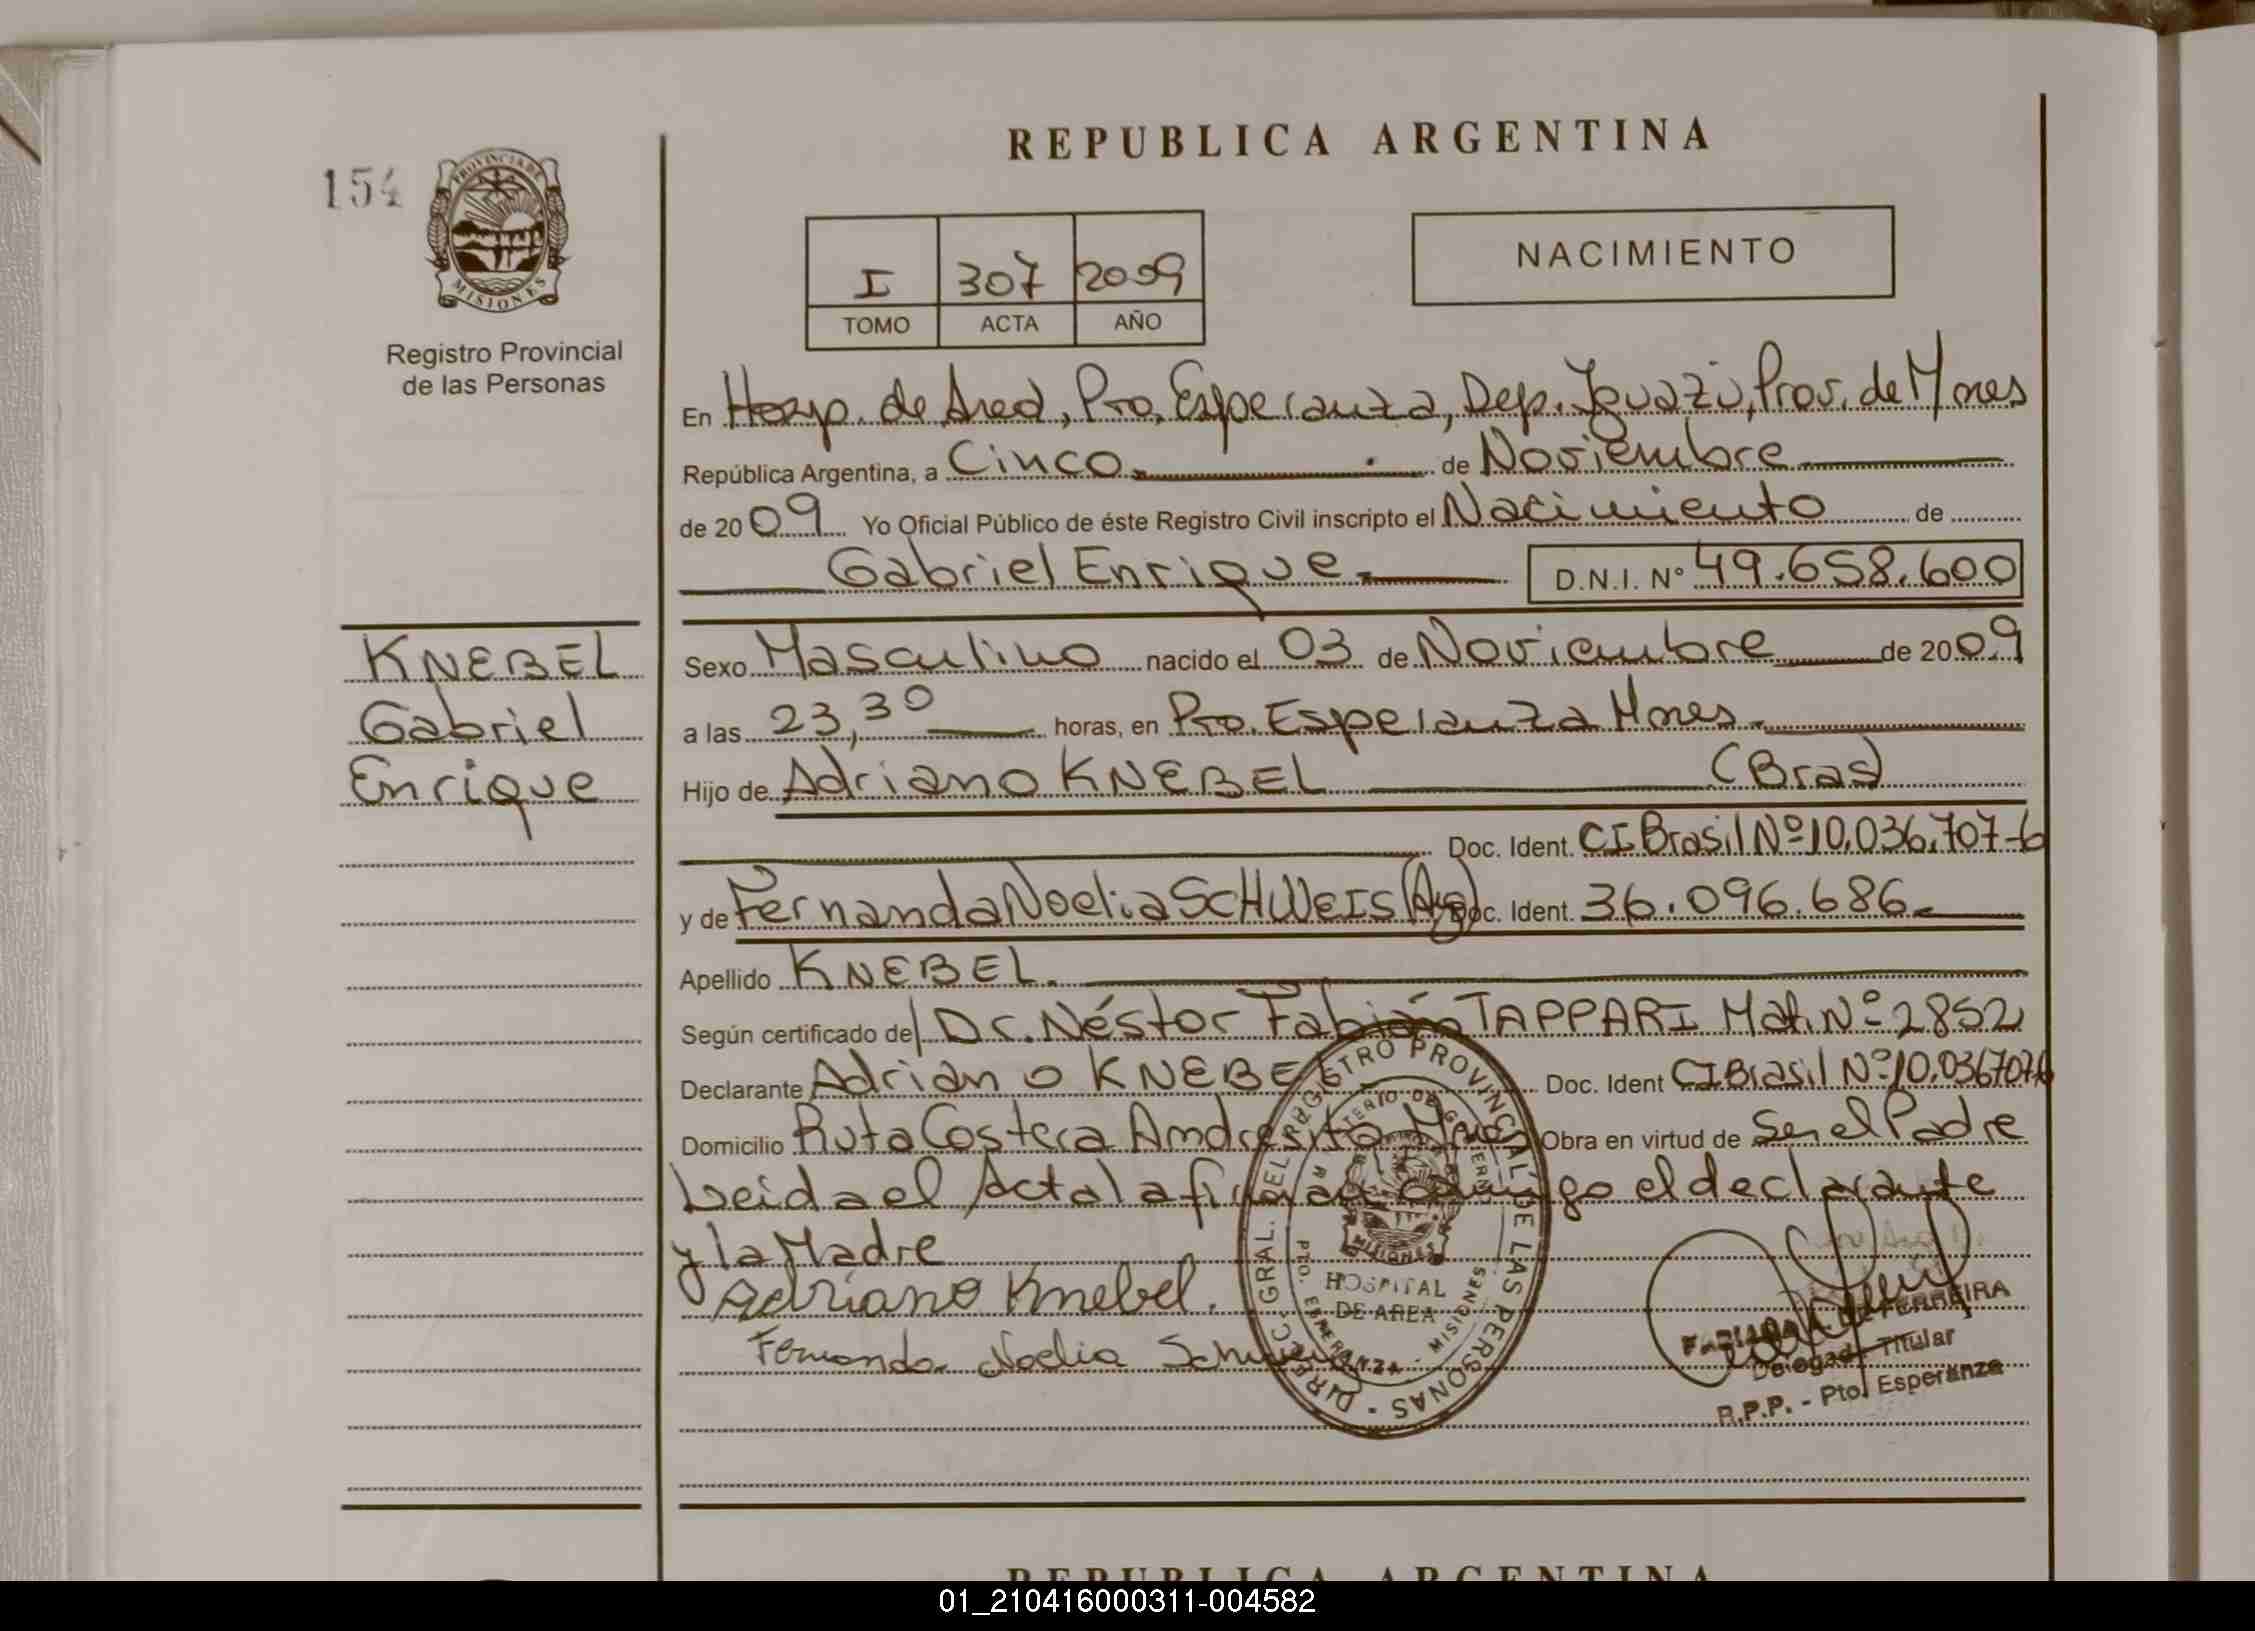 REPUBLICA ARGENTINA
154
PROVINCIA DE
MISIONES
Registro Provincial
de las Personas
I 307 2009
TOMO ACTA AÑO
NACIMIENTO
En Hosp. de Area, Pto. Esperanza, Dep. Iguazú, Prov. de Mnes
República Argentina, a Cinco. de Noviembre
de 2009 Yo Oficial Público de éste Registro Civil inscripto el Nacimiento de
Gabriel Enrique. D.N.I. N° 49.658.600
KNEBEL
Gabriel
Enrique
Sexo Masculino nacido el 03 de Noviembre de 2009
a las 23,30 horas, en Pto. Esperanza Mnes.
Hijo de Adriano KNEBEL (Bras)
Doc. Ident. CI Brasil Nº 10.036.707-6
y de Fernanda Noelia SCHWEIS (Arg) Doc. Ident. 36.096.686.
Apellido KNEBEL.
Según certificado del Dr. Néstor Fabián TAPPARI Mat. Nº 2852
Declarante Adriano KNEBEL Doc. Ident CI Brasil Nº 10.0367076
Domicilio Ruta Costera Andresito Mnes Obra en virtud de Ser el Padre
Leida el Acta la firman conmigo el declarante
y la Madre
Adriano Knebel.
Fernanda Noelia
DIREC. GRAL. DEL REGISTRO PROVINCIAL DE LAS PERSONAS -
MINISTERIO DE GOBIERNO
MISIONES
HOSPITAL
DE AREA
PTO. ESPERANZA - MISIONES
DE FERREIRA
Delegada Titular
R.P.P. - Pto. Esperanza
REPUBLICA ARGENTINA
01_210416000311-004582